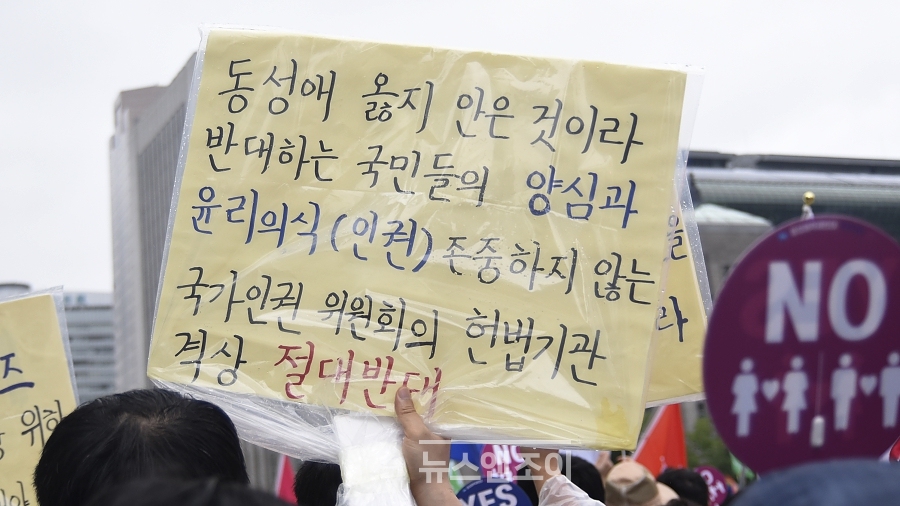 동성애 옳지 안은 것이라
반대하는 국민들의 양심과
윤리의식(인권) 존중하지 않는
국가인권 위원회의 헌법기관
격상 절대반대
NO
뉴스앤조이
NO
YES
즈
위허
을
라